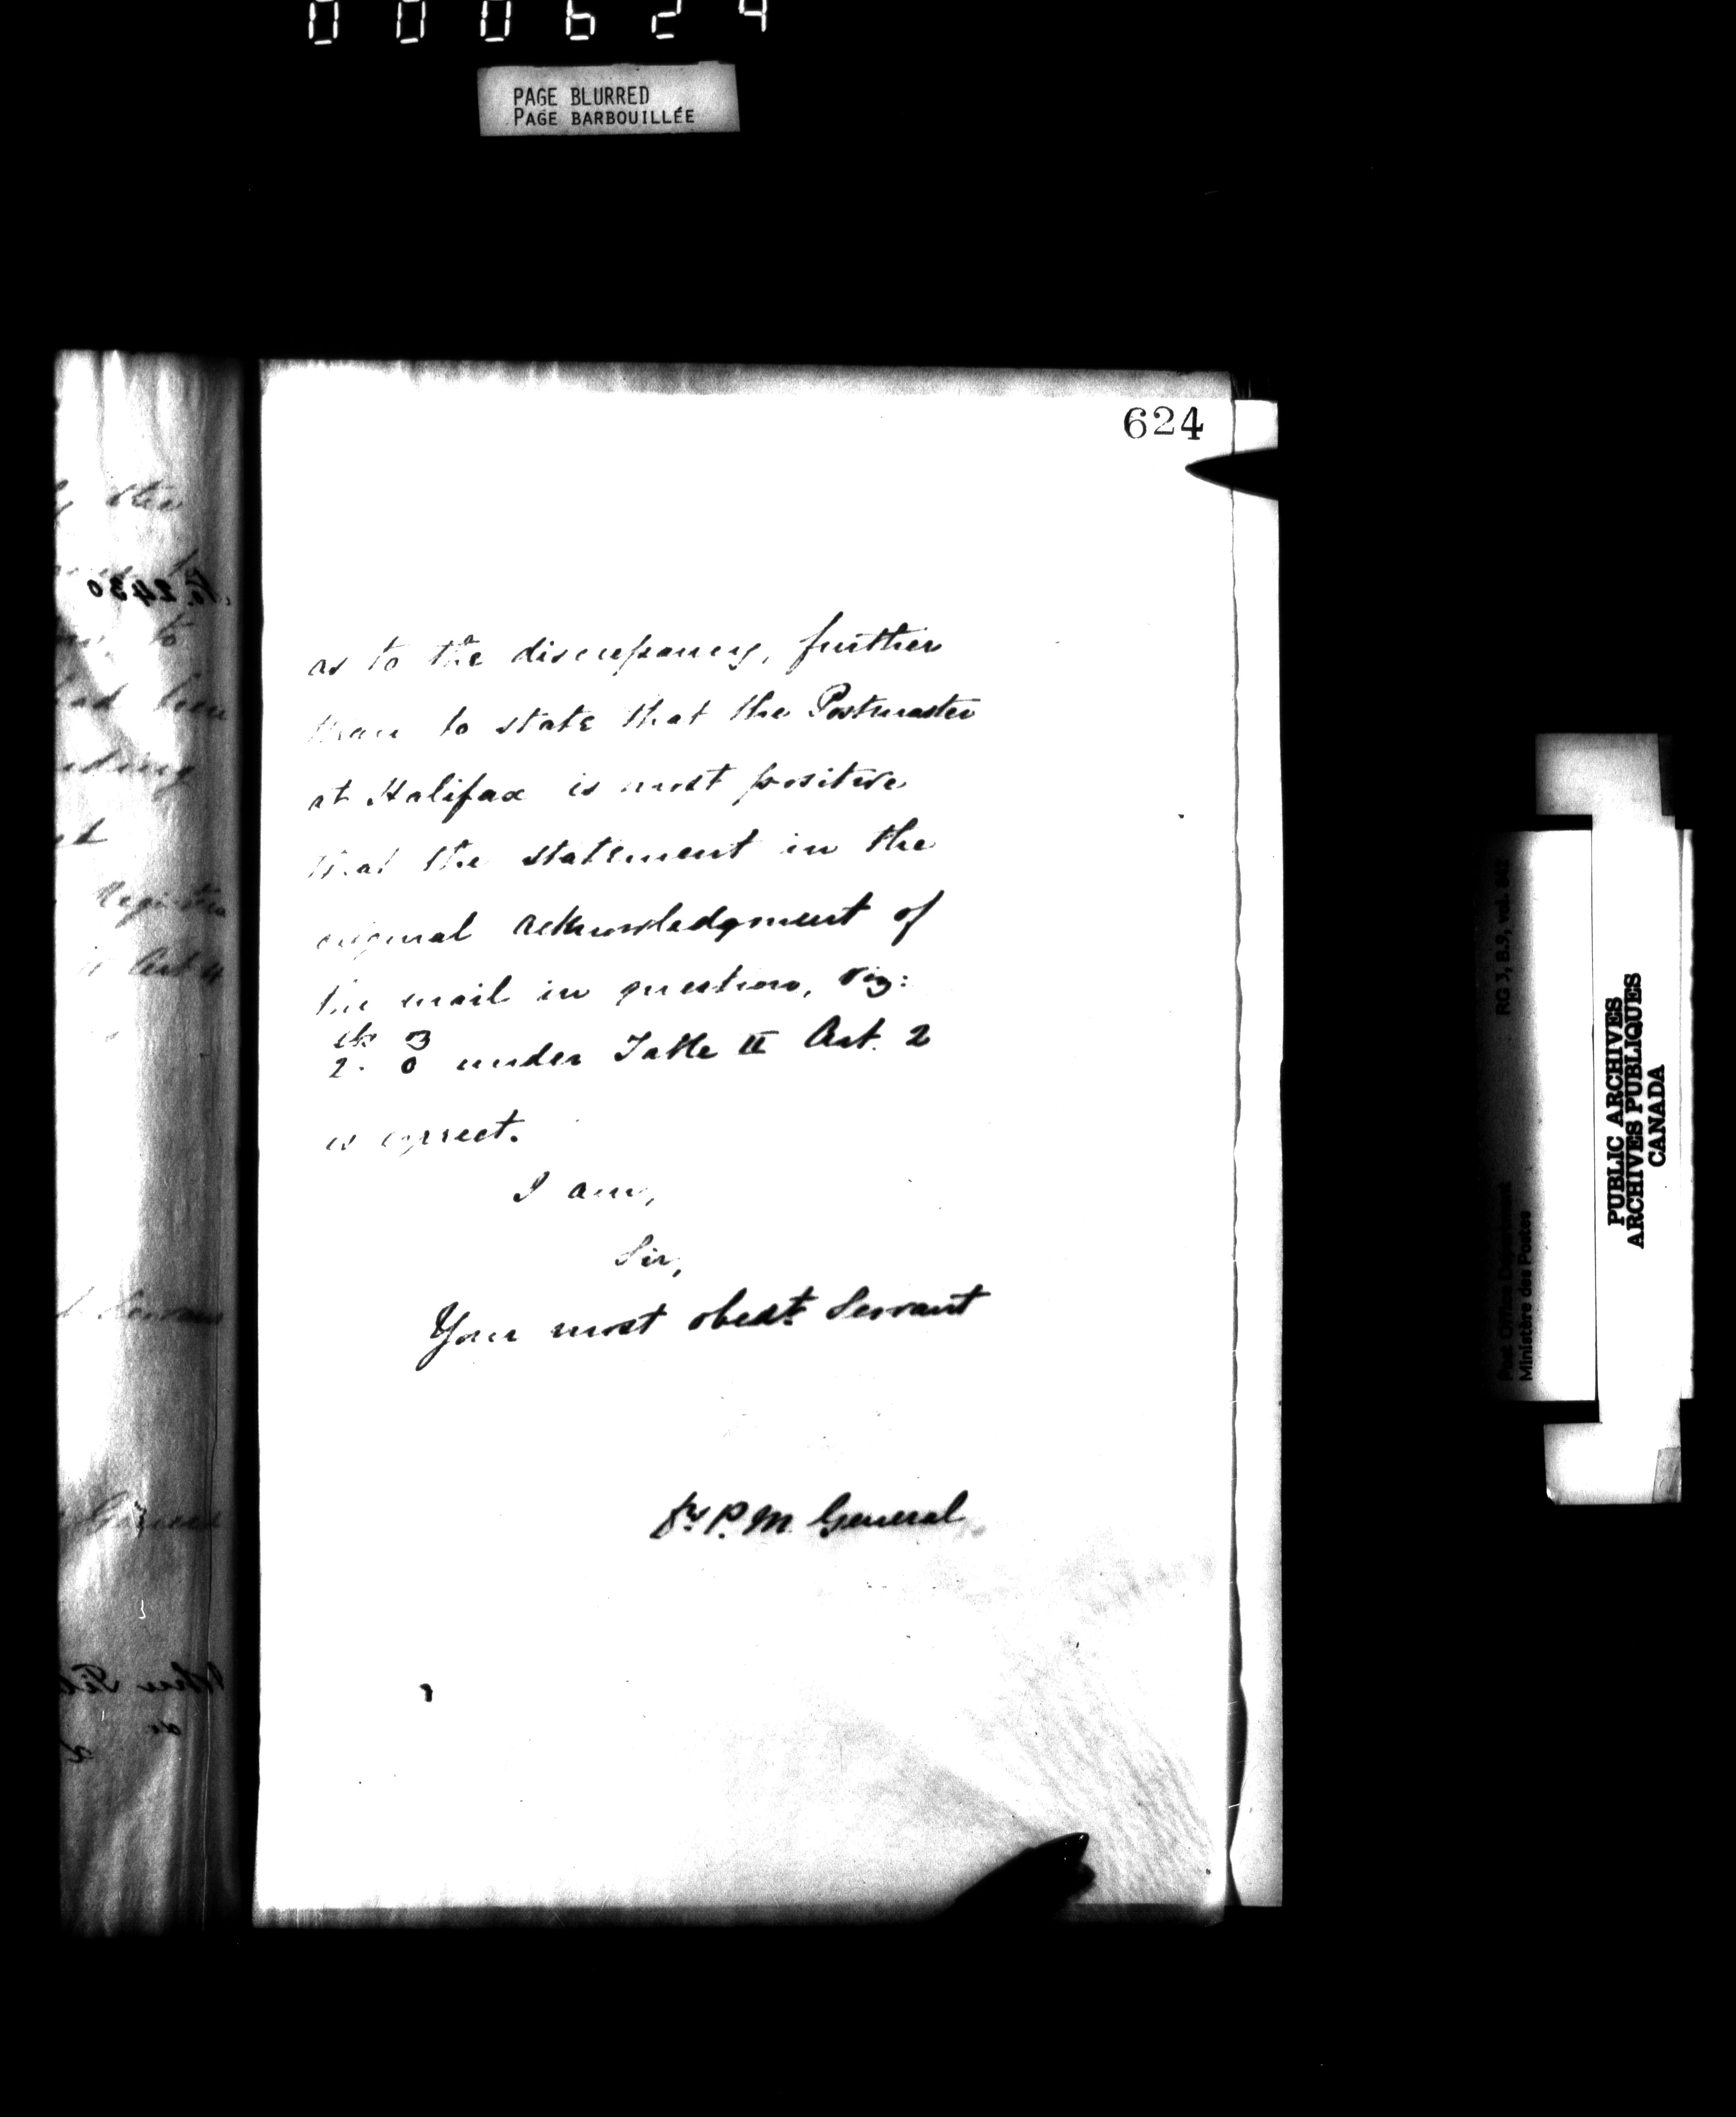 000624
PAGE BLURRED
PAGE BARBOUILLÉE
624
as to the discrepancy, further
than to state that the Postmaster
at Halifax is most positive
that the statement in the
original acknowledgment of
the mail in question, viz:
3
2. 0 under Table II Art. 2
is correct.
I am,
Sir,
Your most obedt. Servant
for P. M. General
the
No. 2430
to
had been
Art 4
Servant
General
RG 3, B.9, vol.
Post Office Department
Ministère des Postes
PUBLIC ARCHIVES
ARCHIVES PUBLIQUES
CANADA